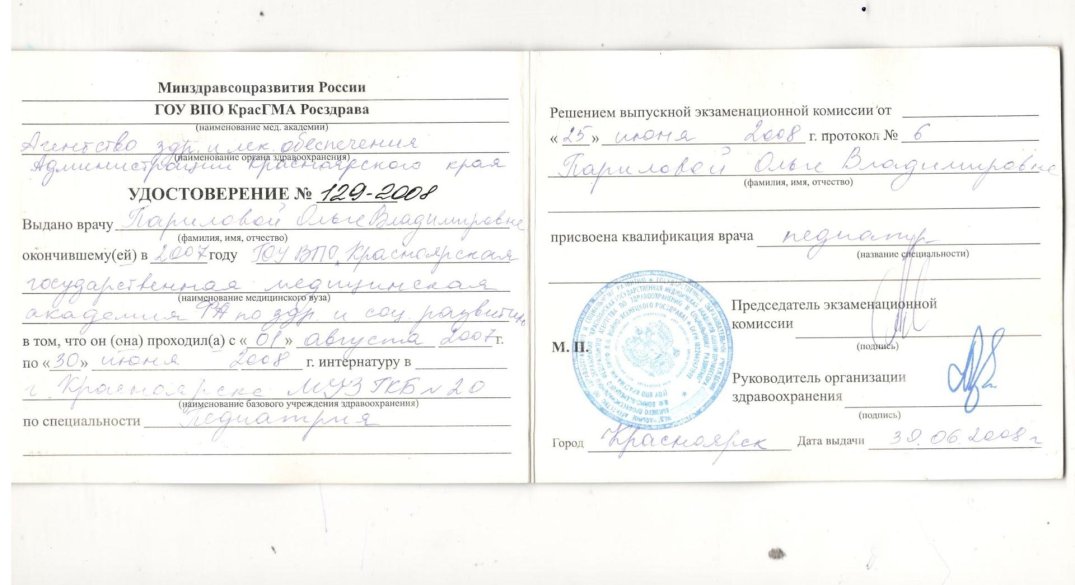 Минздравсоцразвития России
ГОУ ВПО КрасГМА Росздрава
(наименование мед. академии)
Агентство здр. и лек. обеспечения
(наименование органа здравоохранения)
Администрации Красноярского края
УДОСТОВЕРЕНИЕ № 129-2008
Выдано врачу Париловой Ольге Владимировне
(фамилия, имя, отчество)
окончившему(ей) в 2007 году ГОУ ВПО Красноярская
государственная медицинская
(наименование медицинского вуза)
академия ФА по здр и соц развитию
в том, что он (она) проходил(а) с « 01 » августа 2007 г.
по « 30 » июня 2008 г. интернатуру в
г. Красноярске МУЗ ГКБ № 20
(наименование базового учреждения здравоохранения)
по специальности Педиатрия
Решением выпускной экзаменационной комиссии от
« 25 » июня 2008 г. протокол № 6
Париловой Ольге Владимировне
(фамилия, имя, отчество)
присвоена квалификация врача педиатр
(название специальности)
Председатель экзаменационной
комиссии
(подпись)
М. П.
Руководитель организации
здравоохранения
(подпись)
Город Красноярск Дата выдачи 30.06.2008 г